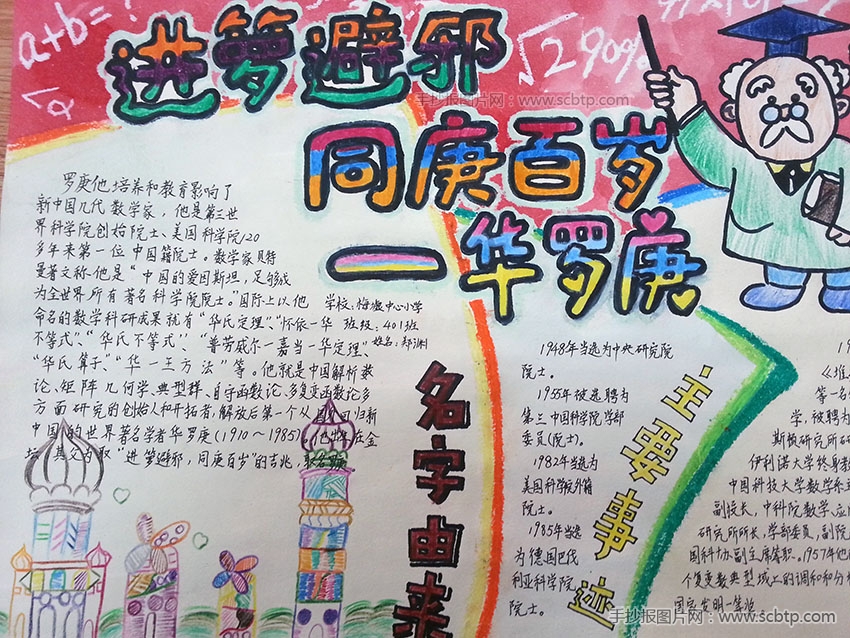 a+b=?
√a
√2 90%
进箩避邪
手抄报图片网：www.scbtp.com
同庚百岁
一华罗庚
罗庚他培养和教育影响了
新中国几代数学家，他是第三世
界科学院创始院士、美国科学院120
多年来第一位中国籍院士。数学家贝特
曼著文称他是“中国的爱因斯坦，足够成
为全世界所有著名科学院院士。”国际上以他
命名的数学科研成果就有“华氏定理”、“怀依一华
不等式”、“华氏不等式”“普劳威尔一嘉当一华定理”、
“华氏算子”、“华一王方法”等。他就是中国解析数
论、矩阵几何学、典型群、自守函数论、多复变函数论多
方面研究的创始人和开拓者，解放后第一个从 回归新
中国的世界著名学者华罗庚（1910～1985）。他出生在金
坛，其父为取“进箩避邪，同庚百岁”的吉兆，
学校：梅 中心小学
班级：401班
姓名：郑渊
名字由来
1948年当选为中央研究院
院士。
1955年被选聘为
第三中国科学院学部
委员（院士）。
1982年当选为
美国科学院外籍
院士。
1985年当选
为德国巴伐
利亚科学院
院士。
主要事迹
1
《堆
等一名
学，被聘为
斯顿研究所研
伊利诺大学终身教
中国科技大学数学系主
副院长，中科院数学、应
研究所所长，学部委员，副院
国科协副主席等职。1957年他
个复变数典型域上的调和和分析
国家发明一等
手抄报图片网：www.scbtp.com